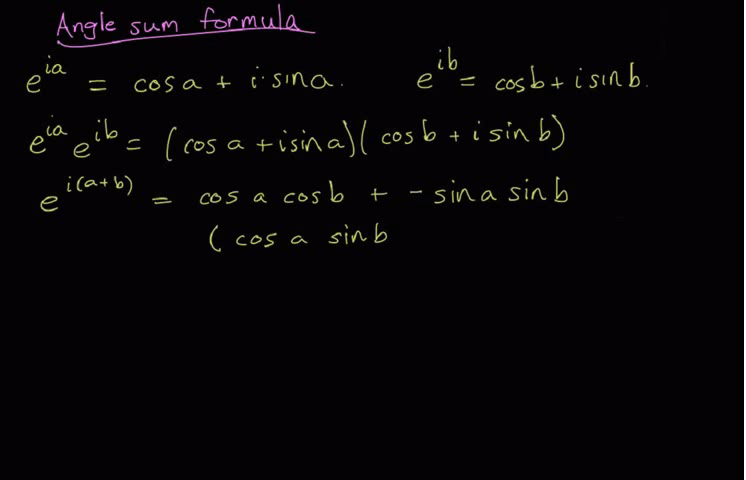 Angle sum formula
e^{ia} = cos a + i·sin a. e^{ib} = cos b + i sin b.
e^{ia} e^{ib} = (cos a + i sin a)(cos b + i sin b)
e^{i(a+b)} = cos a cos b + - sin a sin b
( cos a sin b